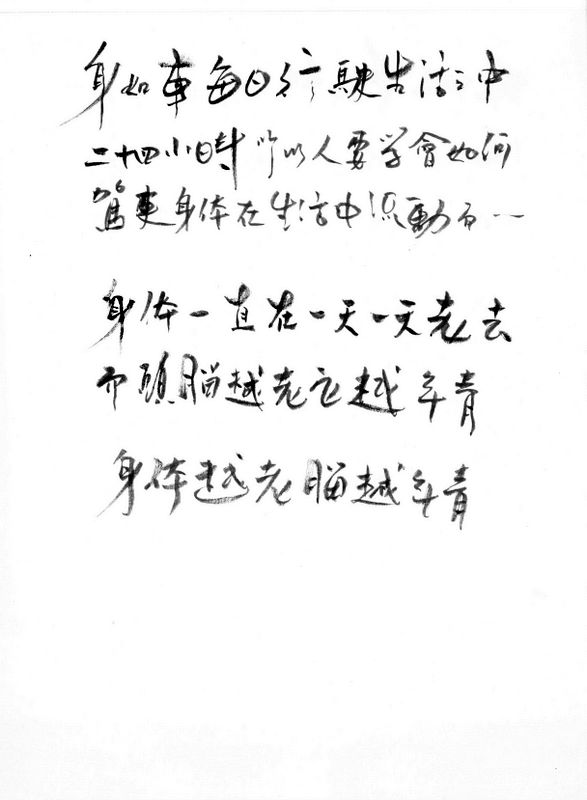 身如車每日行駛生活之中
二十四小時所以人要学會如何
駕更身体在生活中流動而一一
身体一直在一天一天老去
而頭腦越老它越年青
身体越老腦越年青